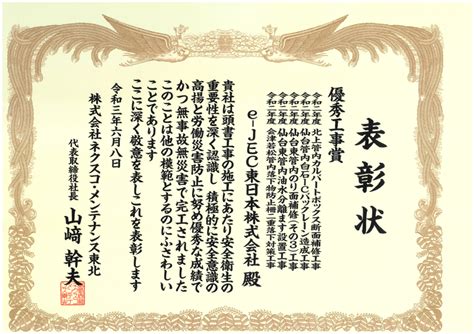 表彰状
優秀工事賞
令和二年度 北上管内カルバートボックス断面補修工事
令和二年度 仙台管内白石ICバックレーン造成工事
令和二年度 仙台東管内のり面補修(その3)工事
令和二年度 仙台東管内油水分離ます設置工事
令和二年度 会津若松管内落下物防止柵二重落下対策工事
e-JEC東日本株式会社 殿
貴社は頭書工事の施工にあたり安全衛生の
重要性を深く認識し積極的に安全意識の
高揚と労働災害防止に努め優秀な成績で
かつ無事故無災害で完工されました
このことは他の模範とするのにふさわしい
ことであります
ここに深く敬意を表しこれを表彰します
令和三年六月八日
株式会社ネクスコ・メンテナンス東北
代表取締役社長 山﨑幹夫